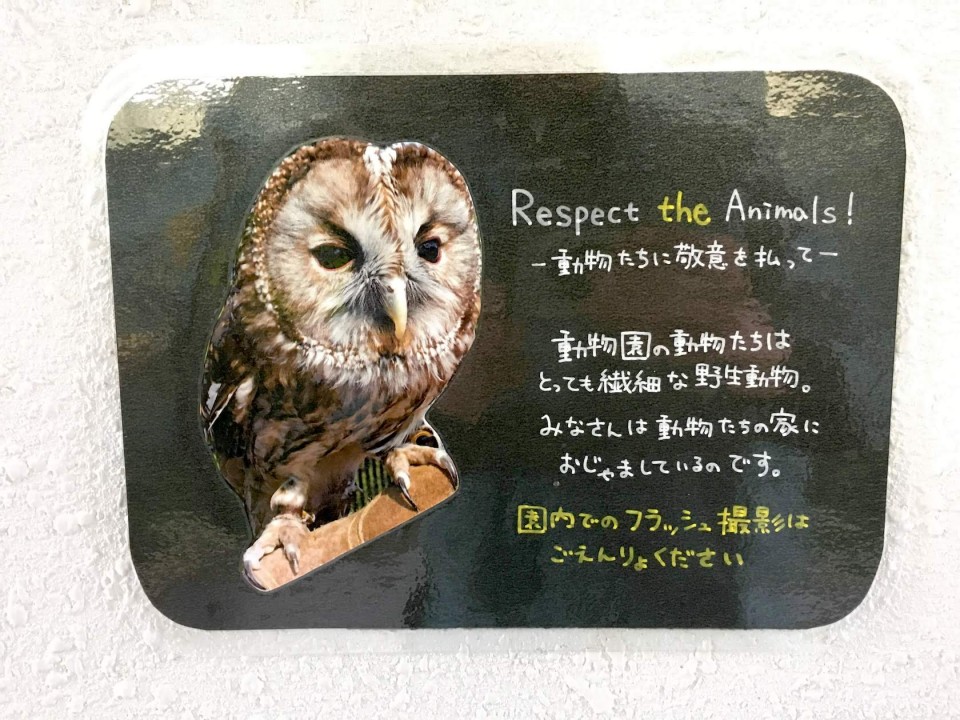 Respect the Animals!
－動物たちに敬意を払って－
動物園の動物たちは
とっても繊細な野生動物。
みなさんは動物たちの家に
おじゃましているのです。
園内でのフラッシュ撮影は
ごえんりょください